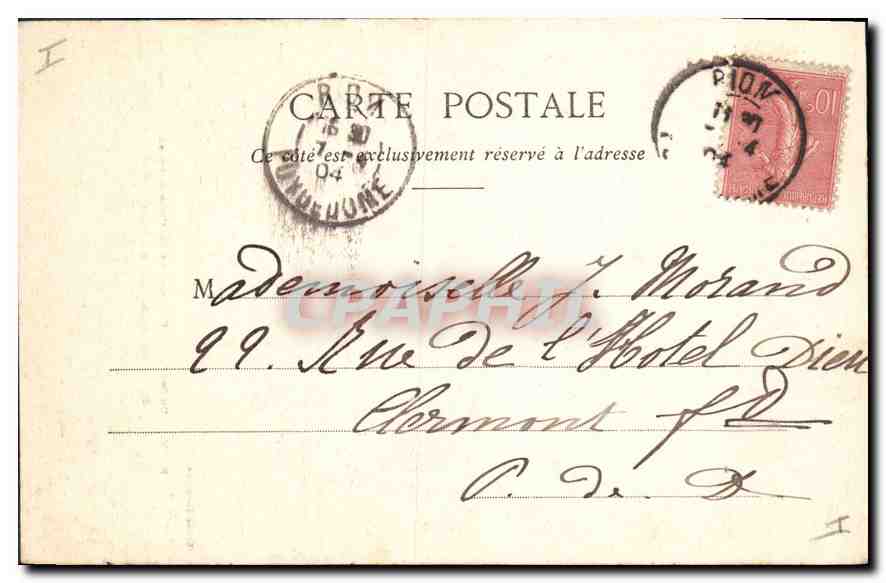 I
CARTE POSTALE
Ce côté est exclusivement réservé à l'adresse
PUY DE DOME
04
RIOM
04
10
Mademoiselle J. Morand
99. Rue de l'Hotel Dieu
Clermont fd
P. de D
CPAPHIL
I